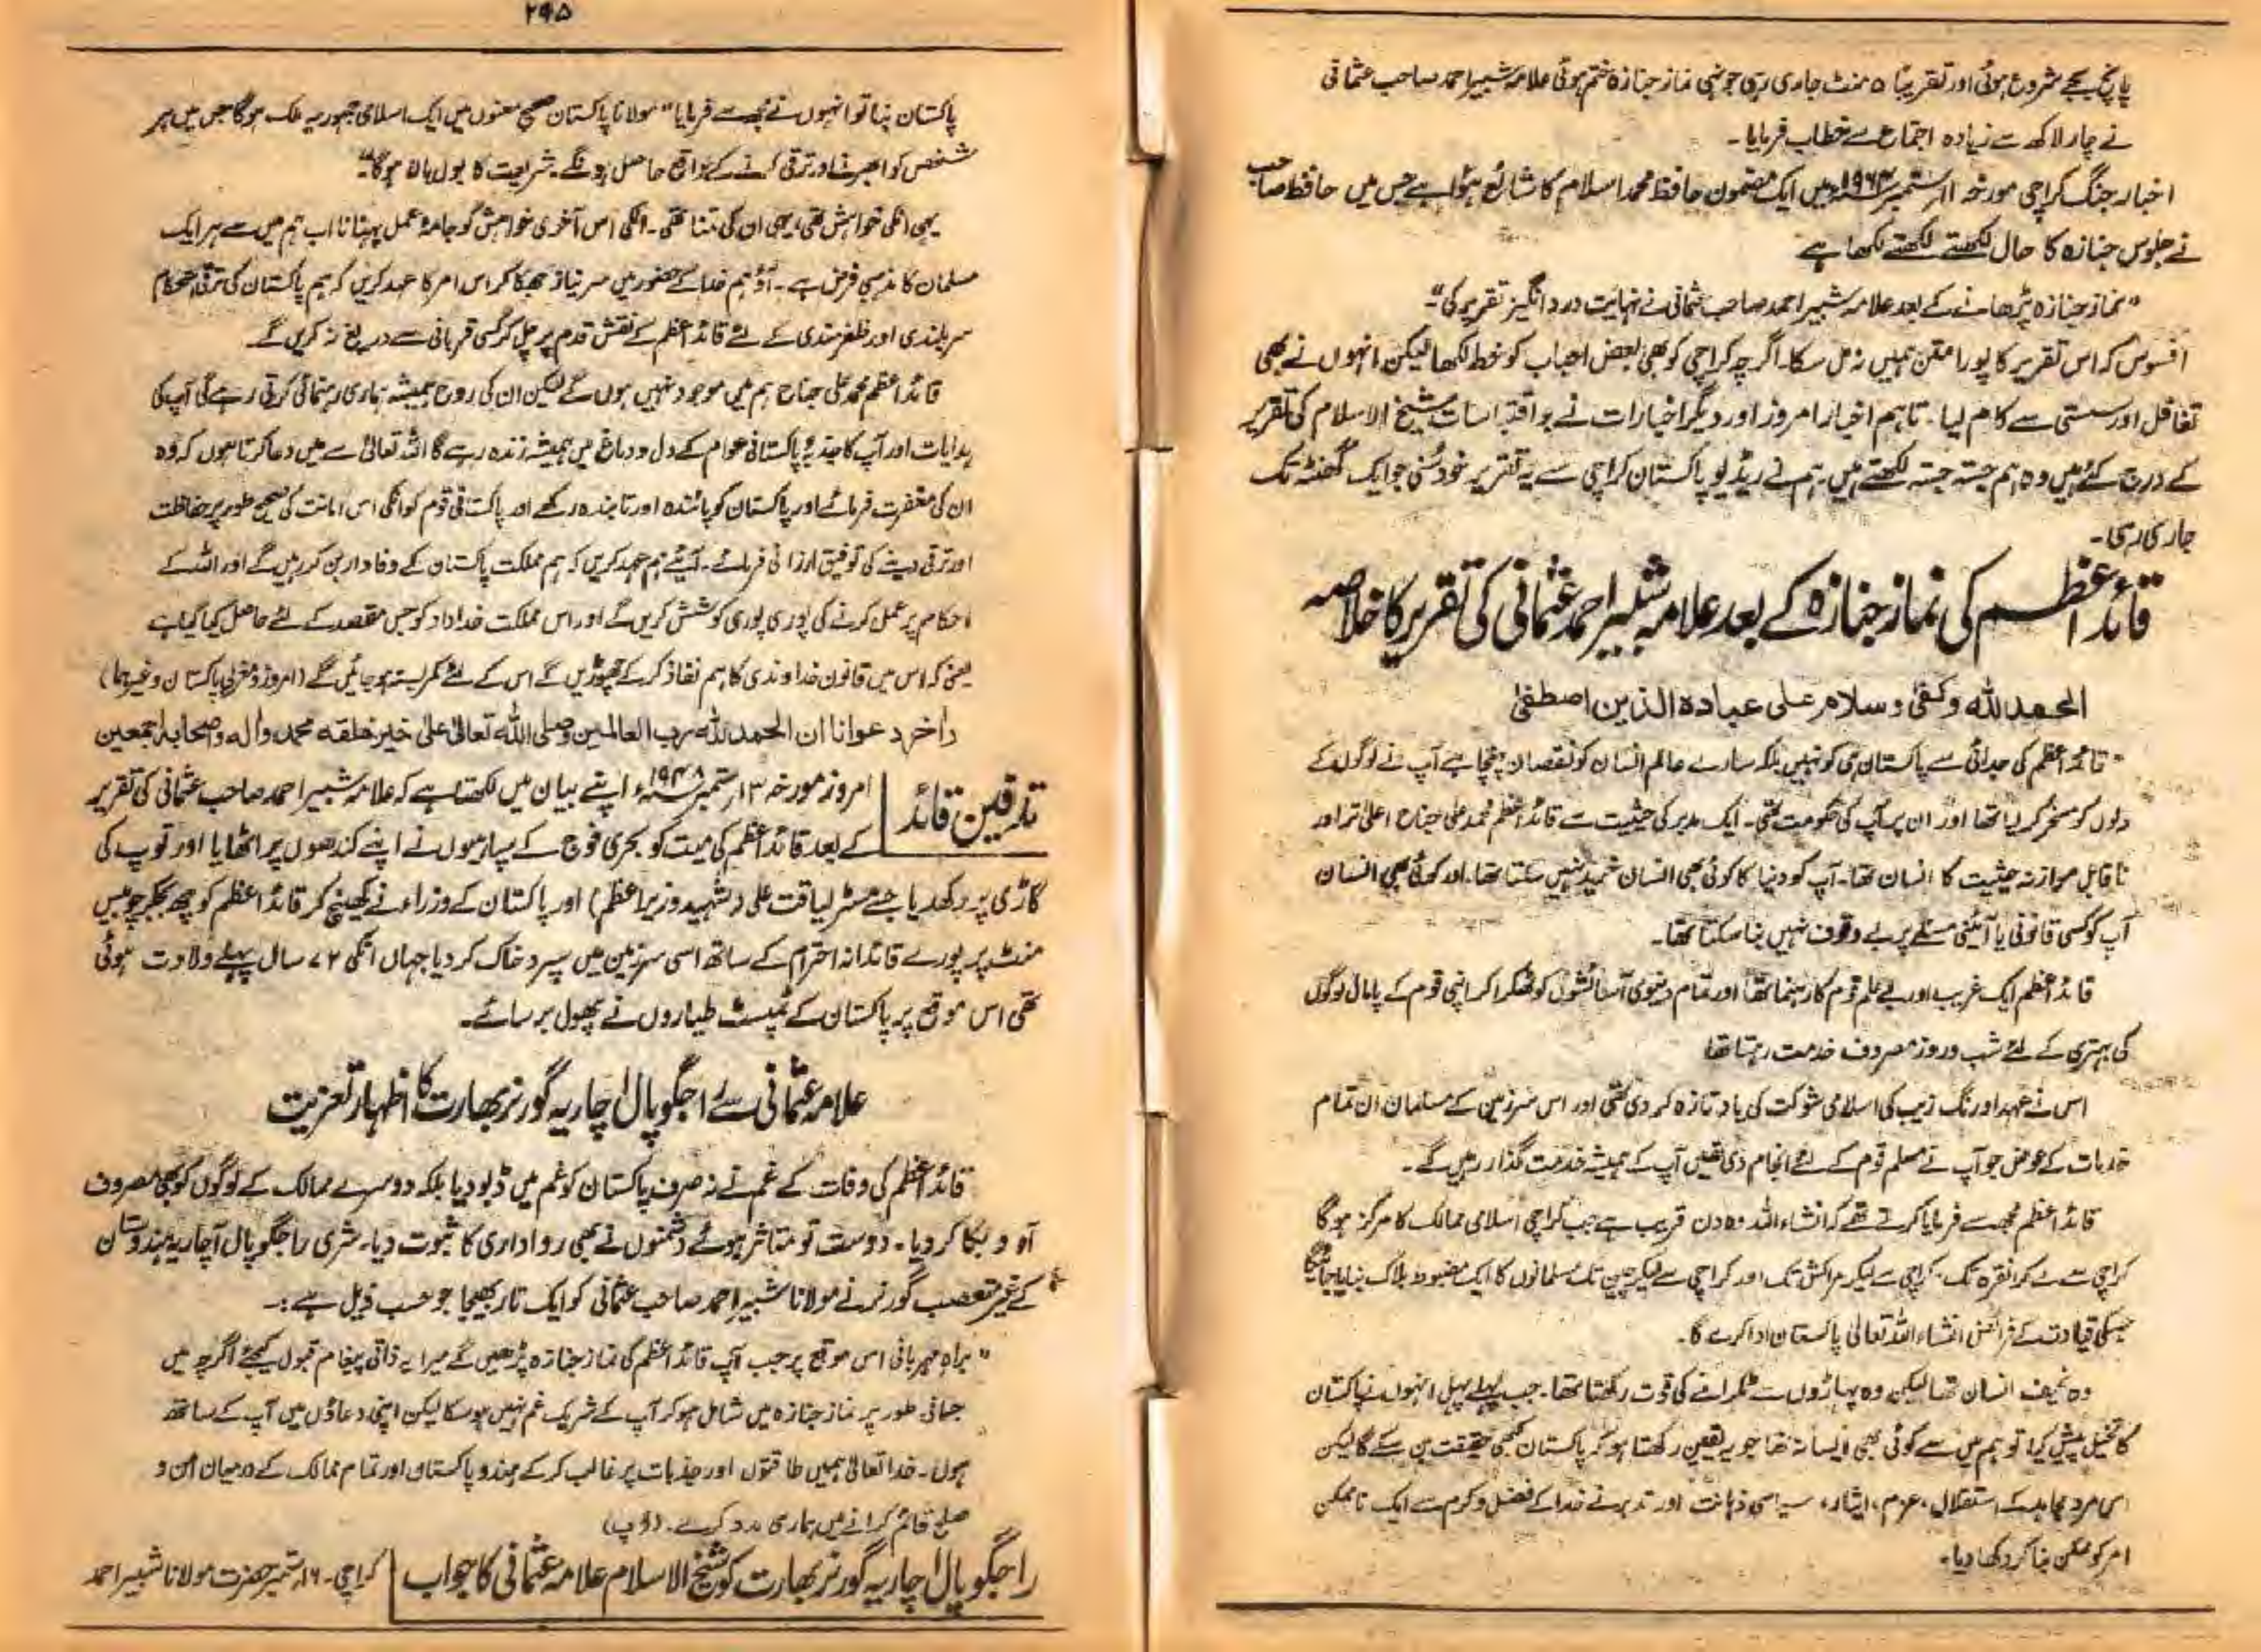 پانچ بجے شروع ہوئی اور تقریباً ۵ منٹ جاری رہی جونہی نماز جنازہ ختم ہوئی علامہ شبیر احمد صاحب عثمانی
نے چار لاکھ سے زیادہ اجتماع سے خطاب فرمایا۔
اخبار جنگ کراچی مورخہ ۱۱ ستمبر ۱۹۶۳ء میں ایک مضمون حافظ محمد اسلام کا شائع ہوا ہے جس میں حافظ صاحب
نے جلوس جنازہ کا حال لکھتے لکھتے لکھا ہے
"نماز جنازہ پڑھانے کے بعد علامہ شبیر احمد صاحب عثمانی نے نہایت درد انگیز تقریر کی"۔
افسوس کہ اس تقریر کا پورا متن ہمیں نہ مل سکا۔ اگرچہ کراچی کو بھی بعض احباب کو خط لکھا لیکن انہوں نے بھی
تغافل اور سستی سے کام لیا۔ تاہم اخبار امروز اور دیگر اخبارات نے جو اقتباسات شیخ الاسلام کی تقریر
کے درج کئے ہیں وہ ہم جستہ جستہ لکھتے ہیں۔ ہم نے ریڈیو پاکستان کراچی سے یہ تقریر خود سنی جو ایک گھنٹہ تک
جاری رہی۔
قائد اعظم کی نماز جنازہ کے بعد علامہ شبیر احمد عثمانی کی تقریر کا خلاصہ
الحمد للہ وکفیٰ وسلام علی عبادہ الذین اصطفیٰ
"قائد اعظم کی جدائی سے پاکستان ہی کو نہیں بلکہ سارے عالم انسان کو نقصان پہنچا ہے آپ نے لوگوں کے
دلوں کو مسخر کر لیا تھا اور ان پر آپ کی حکومت تھی۔ ایک مدبر کی حیثیت سے قائد اعظم محمد علی جناح اعلیٰ تر اور
ناقابل موازنہ حیثیت کا انسان تھا۔ آپ کو دنیا کا کوئی بھی انسان خرید نہیں سکتا تھا۔ اور کوئی بھی انسان
آپ کو کسی قانونی یا آئینی مسئلے پر بے وقوف نہیں بنا سکتا تھا۔
قائد اعظم ایک غریب اور بے علم قوم کا رہنما تھا اور تمام دنیوی آسائشوں کو ٹھکرا کر اپنی قوم کے پامال لوگوں
کی بہتری کے لئے شب و روز مصروف خدمت رہتا تھا
اس نے عہد اورنگ زیب کی اسلامی شوکت کی یاد تازہ کر دی تھی اور اس سرزمین کے مسلمان ان تمام
خدمات کے عوض جو آپ نے مسلم قوم کے لئے انجام دی تھیں آپ کے ہمیشہ خدمت گذار رہیں گے۔
قائد اعظم مجھ سے فرمایا کرتے تھے کہ انشاء اللہ وہ دن قریب ہے جب کراچی اسلامی ممالک کا مرکز ہوگا
کراچی سے لے کر انقرہ تک، کراچی سے لیکر مراکش تک اور کراچی سے لیکر چین تک مسلمانوں کا ایک مضبوط بلاک بنایا جائیگا
جسکی قیادت کے فرائض انشاء اللہ تعالیٰ پاکستان ادا کرے گا۔
وہ نحیف انسان تھا لیکن وہ پہاڑوں سے ٹکرانے کی قوت رکھتا تھا۔ جب پہلے پہل انہوں نے پاکستان
کا تخیل پیش کیا تو ہم میں سے کوئی بھی ایسا نہ تھا جو یہ یقین رکھتا ہو کہ پاکستان کبھی حقیقت بن سکے گا لیکن
اس مرد مجاہد کے استقلال، عزم، ایثار، سیاسی ذہانت اور تدبر نے خدا کے فضل و کرم سے ایک ناممکن
امر کو ممکن بنا کر دکھا دیا۔
۲۹۵
پاکستان بنا تو انہوں نے مجھ سے فرمایا "مولانا پاکستان صحیح معنوں میں ایک اسلامی جمہوریہ ملک ہوگا جس میں ہر
شخص کو ابھرنے اور ترقی کرنے کے مواقع حاصل ہونگے۔ شریعت کا بول بالا ہوگا"۔
یہی انکی خواہش تھی یہی ان کی تمنا تھی۔ انکی اس آخری خواہش کو جامۂ عمل پہنانا اب ہم میں سے ہر ایک
مسلمان کا مذہبی فرض ہے۔ آؤ ہم خدا کے حضور میں سر نیاز جھکا کر اس امر کا عہد کریں کہ ہم پاکستان کی ترقی استحکام
سربلندی اور ظفر مندی کے لئے قائد اعظم کے نقش قدم پر چل کر کسی قربانی سے دریغ نہ کریں گے۔
قائد اعظم محمد علی جناح ہم میں موجود نہیں ہوں گے لیکن ان کی روح ہمیشہ ہماری رہنمائی کرتی رہے گی آپ کی
ہدایات اور آپ کا جذبۂ پاکستانی عوام کے دل و دماغ میں ہمیشہ زندہ رہے گا اللہ تعالیٰ سے میں دعا کرتا ہوں کہ وہ
ان کی مغفرت فرمائے اور پاکستان کو پائندہ اور تابندہ رکھے اور پاکستانی قوم کو انکی اس امانت کی صحیح طور پر حفاظت
اور ترقی دینے کی توفیق ارزانی فرمائے۔ آیئے ہم عہد کریں کہ ہم مملکت پاکستان کے وفادار بن کر رہیں گے اور اللہ کے
احکام پر عمل کرنے کی پوری پوری کوشش کریں گے اور اس مملکت خداداد کو جس مقصد کے لئے حاصل کیا گیا ہے
یعنی کہ اس میں قانون خداوندی کا ہم نفاذ کر کے چھوڑیں گے اس کے لئے کمر بستہ ہو جائیں گے (امروز و مغربی پاکستان وغیرہما)
واٰخر دعوانا ان الحمد للہ رب العالمین وصلی اللہ تعالیٰ علی خیر خلقہ محمد واٰلہ واصحابہ اجمعین
تدفین قائد
امروز مورخہ ۱۳ ستمبر ۱۹۴۸ء اپنے بیان میں لکھتا ہے کہ علامہ شبیر احمد صاحب عثمانی کی تقریر
کے بعد قائد اعظم کی میت کو بحری فوج کے سپاہیوں نے اپنے کندھوں پر اٹھایا اور توپ کی
گاڑی پر رکھدیا جسے مسٹر لیاقت علی (شہید وزیر اعظم) اور پاکستان کے وزراء نے کھینچ کر قائد اعظم کو چھ بجکر چوبیس
منٹ پر پورے قائدانہ احترام کے ساتھ اسی سرزمین میں سپرد خاک کر دیا جہاں انکی ۷۲ سال پہلے ولادت ہوئی
تھی اس موقع پر پاکستان کے ٹمپسٹ طیاروں نے پھول برسائے۔
علامہ عثمانی سے راجگوپال اچاریہ گورنر بھارت کا اظہار تعزیت
قائد اعظم کی وفات کے غم نے نہ صرف پاکستان کو غم میں ڈبو دیا بلکہ دوسرے ممالک کے لوگوں کو بھی مصروف
آہ و بکا کر دیا۔ دوست تو متاثر ہوئے دشمنوں نے بھی رواداری کا ثبوت دیا۔ شری راجگوپال آچاریہ ہندوستان
کے غیر متعصب گورنر نے مولانا شبیر احمد صاحب عثمانی کو ایک تار بھیجا جو حسب ذیل ہے:۔
"براہ مہربانی اس موقع پر جب آپ قائد اعظم کی نماز جنازہ پڑھیں گے میرا یہ ذاتی پیغام قبول کیجئے اگرچہ میں
جسمانی طور پر نماز جنازہ میں شامل ہو کر آپ کے شریک غم نہیں ہو سکا لیکن اپنی دعاؤں میں آپ کے ساتھ
ہوں۔ خدا تعالیٰ ہمیں طاقتوں اور جذبات پر غالب کر کے ہند و پاکستان اور تمام ممالک کے درمیان امن و
صلح قائم کرانے میں ہماری مدد کرے۔ (اپ)
راجگوپال اچاریہ گورنر بھارت کو شیخ الاسلام علامہ عثمانی کا جواب
کراچی۔ ۱۶ ستمبر حضرت مولانا شبیر احمد